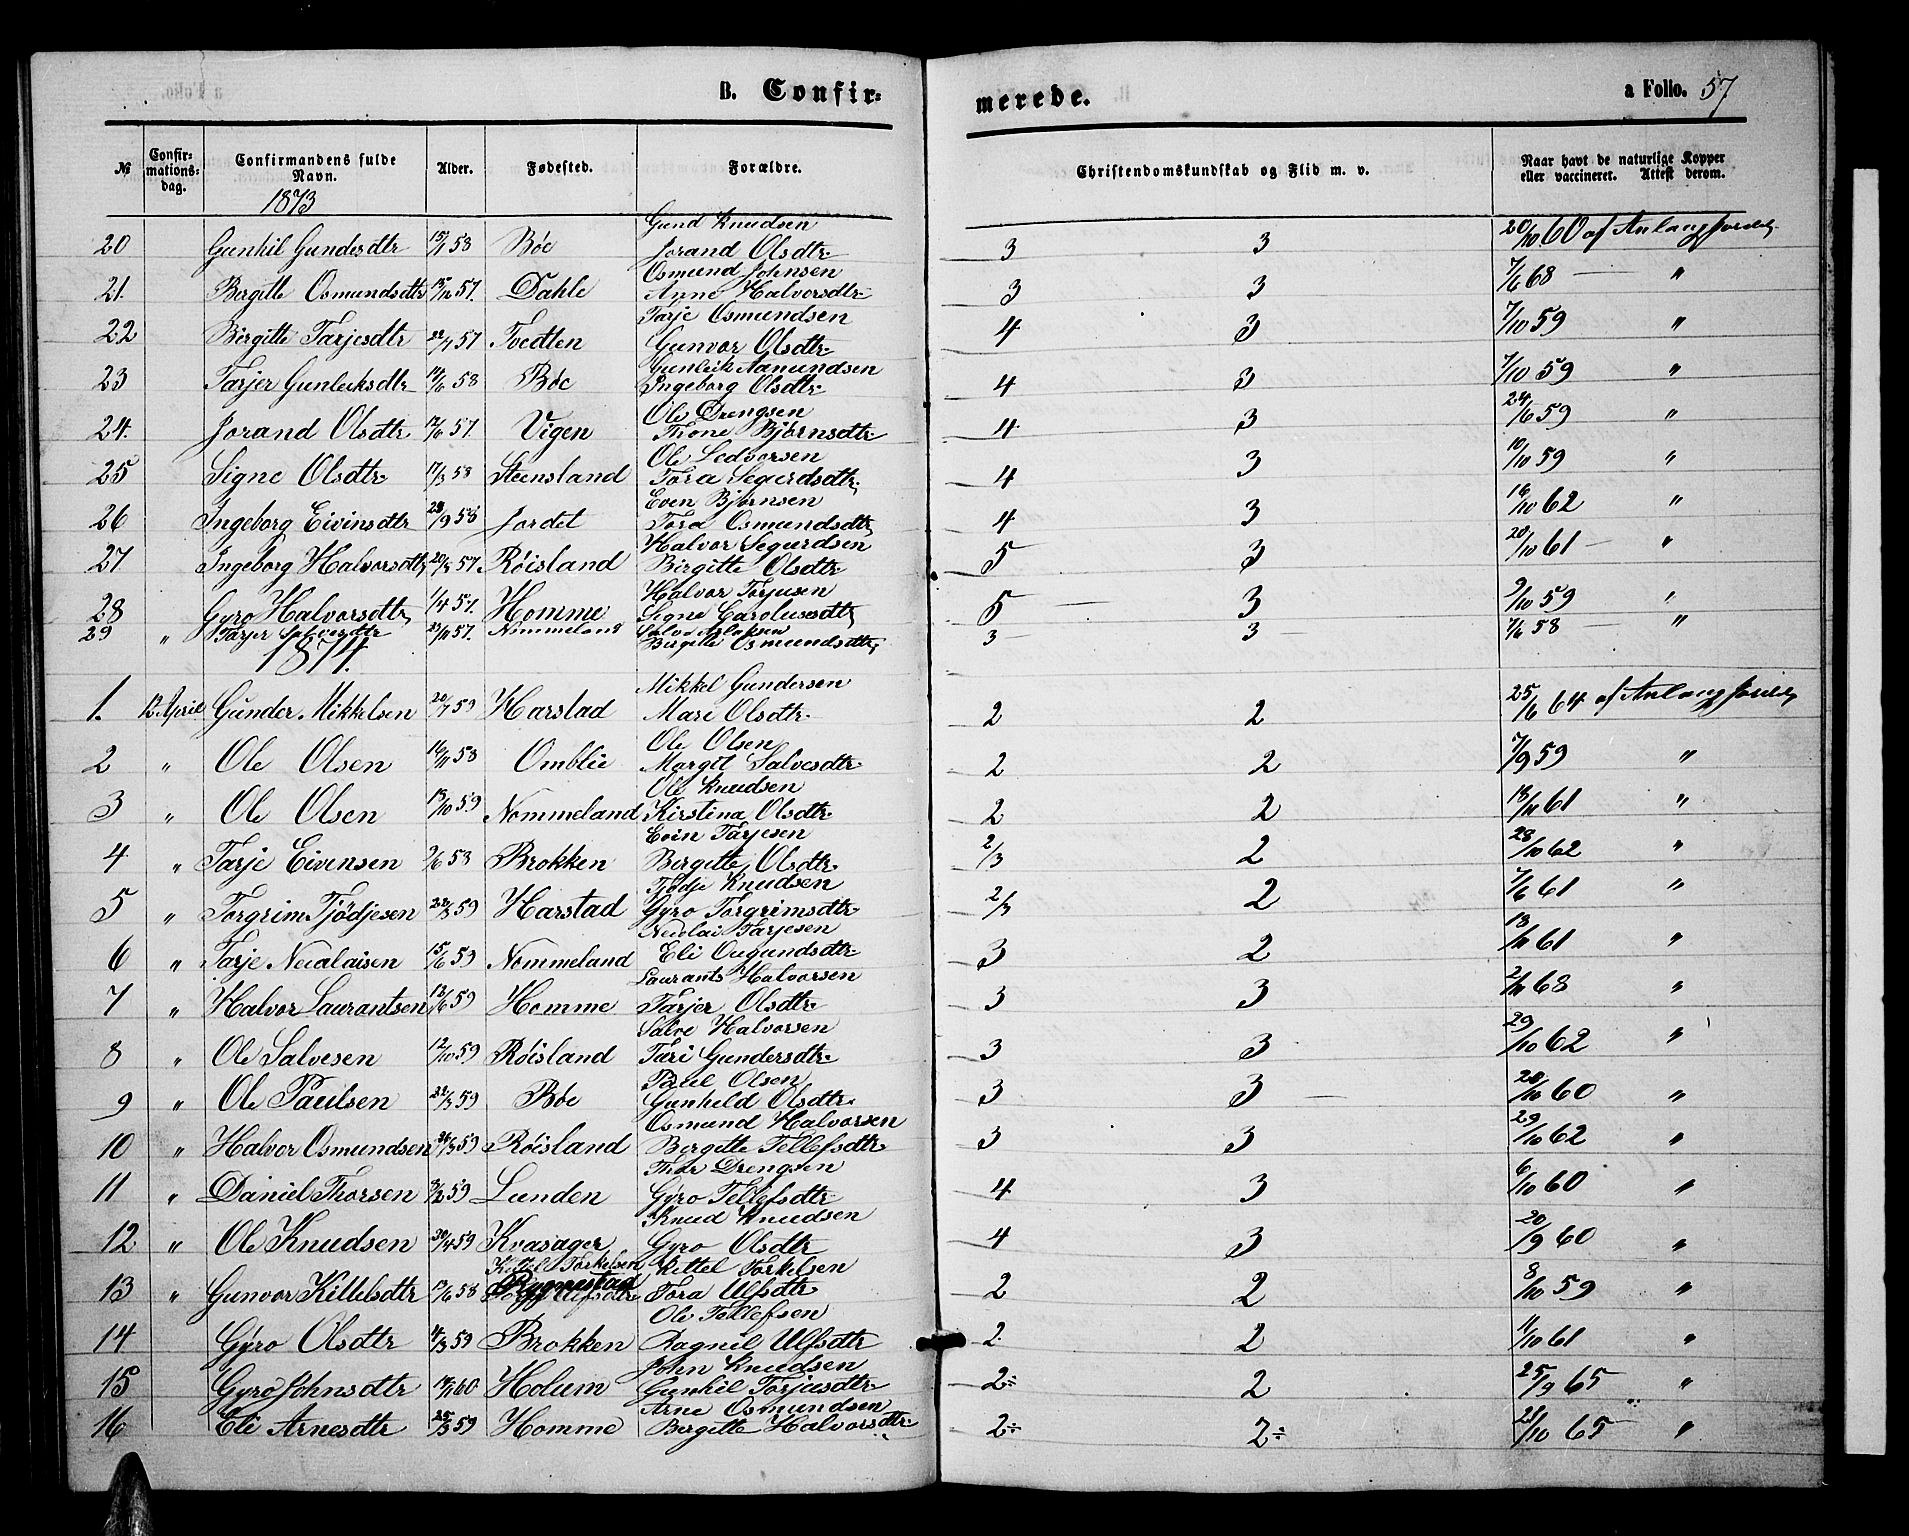 B. Confir-
merede.
a Folio. 57
№ Confir-mations-dag. Confirmandens fulde Navn. Alder. Fødested. Forældre. Christendomskundskab og Flid m. v. Naar havt de naturlige Kopper eller vaccineret. Attest derom.
1873
Gund Knudsen
20 Gunhil Gundesdtr 15/1 58 Bøe Jorand Olsdtr. 3 3 20/10 60 af
Osmund Johnsen
21. Birgitte Osmundsdtr 57. Dahle Anne Halvorsdtr. 3 3 7/6 68 — "
Tarje Osmundsen
22 Birgitte Tarjesdtr 57 Tvedten Gunvor Olsdtr. 4 3 7/10 59 "
Gunleik Aamundsen
23 Tarjer Gunleiksdtr 58 Bøe Ingeborg Olsdtr 4 3 7/10 59 "
Ole Drengsen
24. Jorand Olsdtr 57. Vigen Thone Bjørnsdtr. 4 3 24/6 59 "
Ole Sedvorsen
25 Signe Olsdtr. 17/3 58 Steensland Tora Segurdsdtr. 4 3 10/10 59 "
Even Bjørnsen
26 Ingeborg Eivinsdtr 28/9 58 Jordet Tora Osmundsdtr 4 3 16/10 62 "
Halvor Segurdsen
27 Ingeborg Halvorsdtr 57. Røisland Birgitte Olsdtr 5 3 20/10 61 — "
Halvor Torjusen
28 Gyro Halvorsdtr 1/4 57. Homme Signe Carolusdtr 5 — 3 9/10 59 "
29 " Tarjer Salvesdtr 57. Nommeland Salve Aslaksen 3 3 7/6 58 "
Birgitte Osmundsdtr.
1874.
Mikkel Gundersen
1. 12 April Gunder Mikkelsen 20/7 59 Harstad Mari Olsdtr. 2 2 25/6 64 af
Ole Olsen
2 " Ole Olsen 16/11 58 Omblie Margit Salvesdtr. 2 2 7/9 59 "
Ole Knudsen
3 " Ole Olsen 13/10 59 Nommeland Kirstina Olsdtr. 2 2 61 "
Evin Tarjesen
4 " Tarje Eivensen 58 Brokken Birgitte Olsdtr. 2/3 2 28/10 62 "
Tjødje Knudsen
5 " Torgrim Tjödjesen 59 Harstad Gyro Torgrimsdtr 2/3 2 7/6 61 "
Nicolai Tarjesen
6 " Tarje Nicolaisen 15/6 59 Nommeland Eli Ougundsdtr. 3 2 61 "
Laurants Halvorsen
7 " Halvor Laurantsen 59 Homme Tarjer Olsdtr. 3 3 68 "
Salve Halvorsen
8 " Ole Salvesen 12/10 59 Røisland Tari Gundersdtr. 3 3 29/10 62 "
Paul Olsen
9 " Ole Paulsen 59 Bøe Gunhild Olsdtr. 3 3 — 20/10 60 "
Osmund Halvorsen
10 " Halvor Osmundsen 59 Røisland Birgitte Tellefsdtr. 3 3 29/10 62 "
Thor Drengsen
11 " Daniel Thorsen 59 Lunden Gyro Tellefsdtr. 4 3 6/10 60 "
Knud Knudsen
12 " Ole Knudsen 30/4 59 Kvasager Gyro Olsdtr 4 3 20/9 60 "
Kittel Torkelsen Kittel Torkelsen
13 " Gunvor Kittelsdtr 17/6 58 Rygnestad Tora Ulfsdtr 2 2 8/10 59 "
Ole Tellefsen
14 Gyro Olsdtr 59 Brokken Ragnil Ulfsdtr 2. 2 11/10 61 "
John Knudsen
15 Gyro Johnsdtr 60 Holum Gunhil Torjusdtr. 2÷ 2 25/9 65 "
Arne Osmundsen
16 Eli Arnesdtr 59 Homme Birgitte Halvorsdtr 2÷ 2÷ 65 "